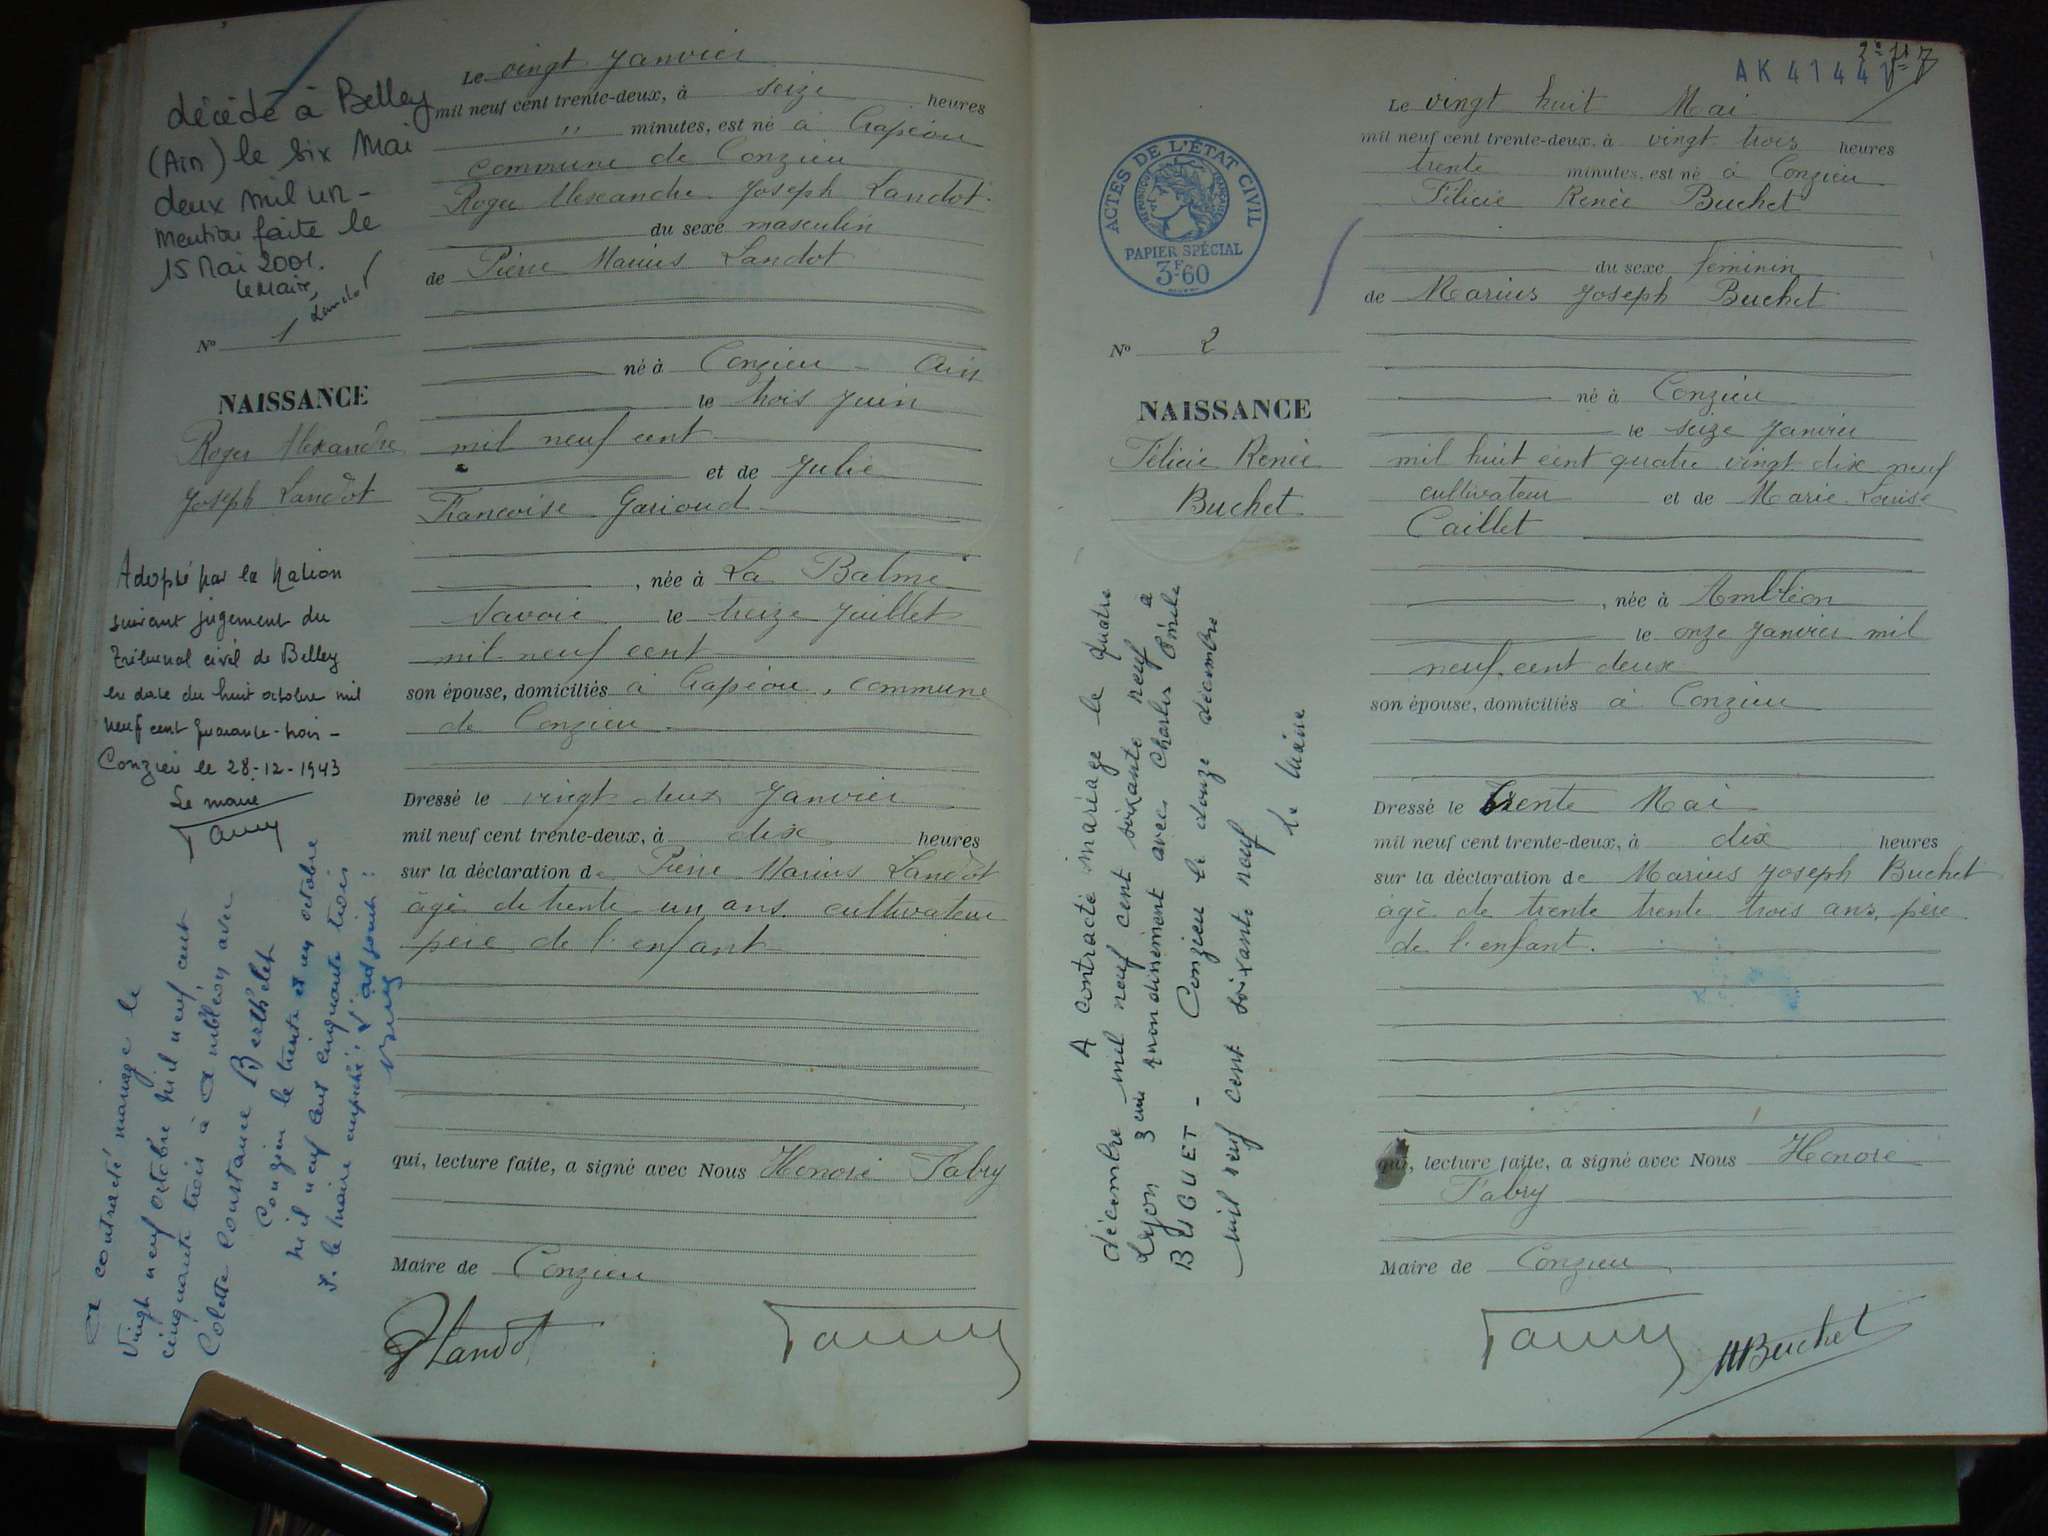 décédé à Belley
(Ain) le six Mai
deux mil un -
Mention faite le
15 Mai 2001.
Le Maire,
Landot
No 1
NAISSANCE
Roger Alexandre
Joseph Landot
Adopté par la Nation
suivant jugement du
tribunal civil de Belley
en date du huit octobre mil
neuf cent quarante-trois -
Conzieu le 28-12-1943
Le maire
A contracté mariage le
vingt neuf octobre mil neuf cent
cinquante trois à Ambléon avec
Colette Constance Berthelet
Conzieu le trente et un octobre
mil neuf cent cinquante trois
P. le maire empêché : l'adjoint :
Le vingt Janvier
mil neuf cent trente-deux, à seize heures
" minutes, est né à Crapéou
commune de Conzieu
Roger Alexandre Joseph Landot
du sexe masculin
de Pierre Marius Landot
né à Conzieu - Ain
le trois Juin
mil neuf cent
et de Julie
Françoise Garioud
, née à La Balme
Savoie le treize Juillet
mil neuf cent
son épouse, domiciliés à Crapéou, commune
de Conzieu
Dressé le vingt deux Janvier
mil neuf cent trente-deux, à dix heures
sur la déclaration de Pierre Marius Landot
âgé de trente un ans cultivateur
père de l'enfant
qui, lecture faite, a signé avec Nous Honoré Fabry
Maire de Conzieu
Landot
AK 4144
ACTES DE L'ÉTAT CIVIL
PAPIER SPÉCIAL
3F60
No 2
NAISSANCE
Félicie Renée
Buchet
A contracté mariage le quatre
décembre mil neuf cent soixante neuf à
Lyon 3eme arrondissement avec Charles Émile
BUGUET - Conzieu le douze décembre
mil neuf cent soixante neuf
Le Maire
Le vingt huit Mai
mil neuf cent trente-deux, à vingt trois heures
trente minutes, est né à Conzieu
Félicie Renée Buchet
du sexe féminin
de Marius Joseph Buchet
né à Conzieu
le seize Janvier
mil huit cent quatre vingt dix neuf
cultivateur et de Marie Louise
Caillet
, née à Ambléon
le onze Janvier mil
neuf cent deux
son épouse, domiciliés à Conzieu
Dressé le trente Mai
mil neuf cent trente-deux, à dix heures
sur la déclaration de Marius Joseph Buchet
âgé de trente trente trois ans, père
de l'enfant.
qui, lecture faite, a signé avec Nous Honoré
Fabry
Maire de Conzieu
MBuchet